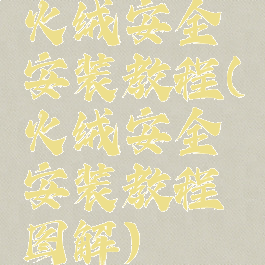 火绒安全
安装教程(
火绒安全
安装教程
图解)